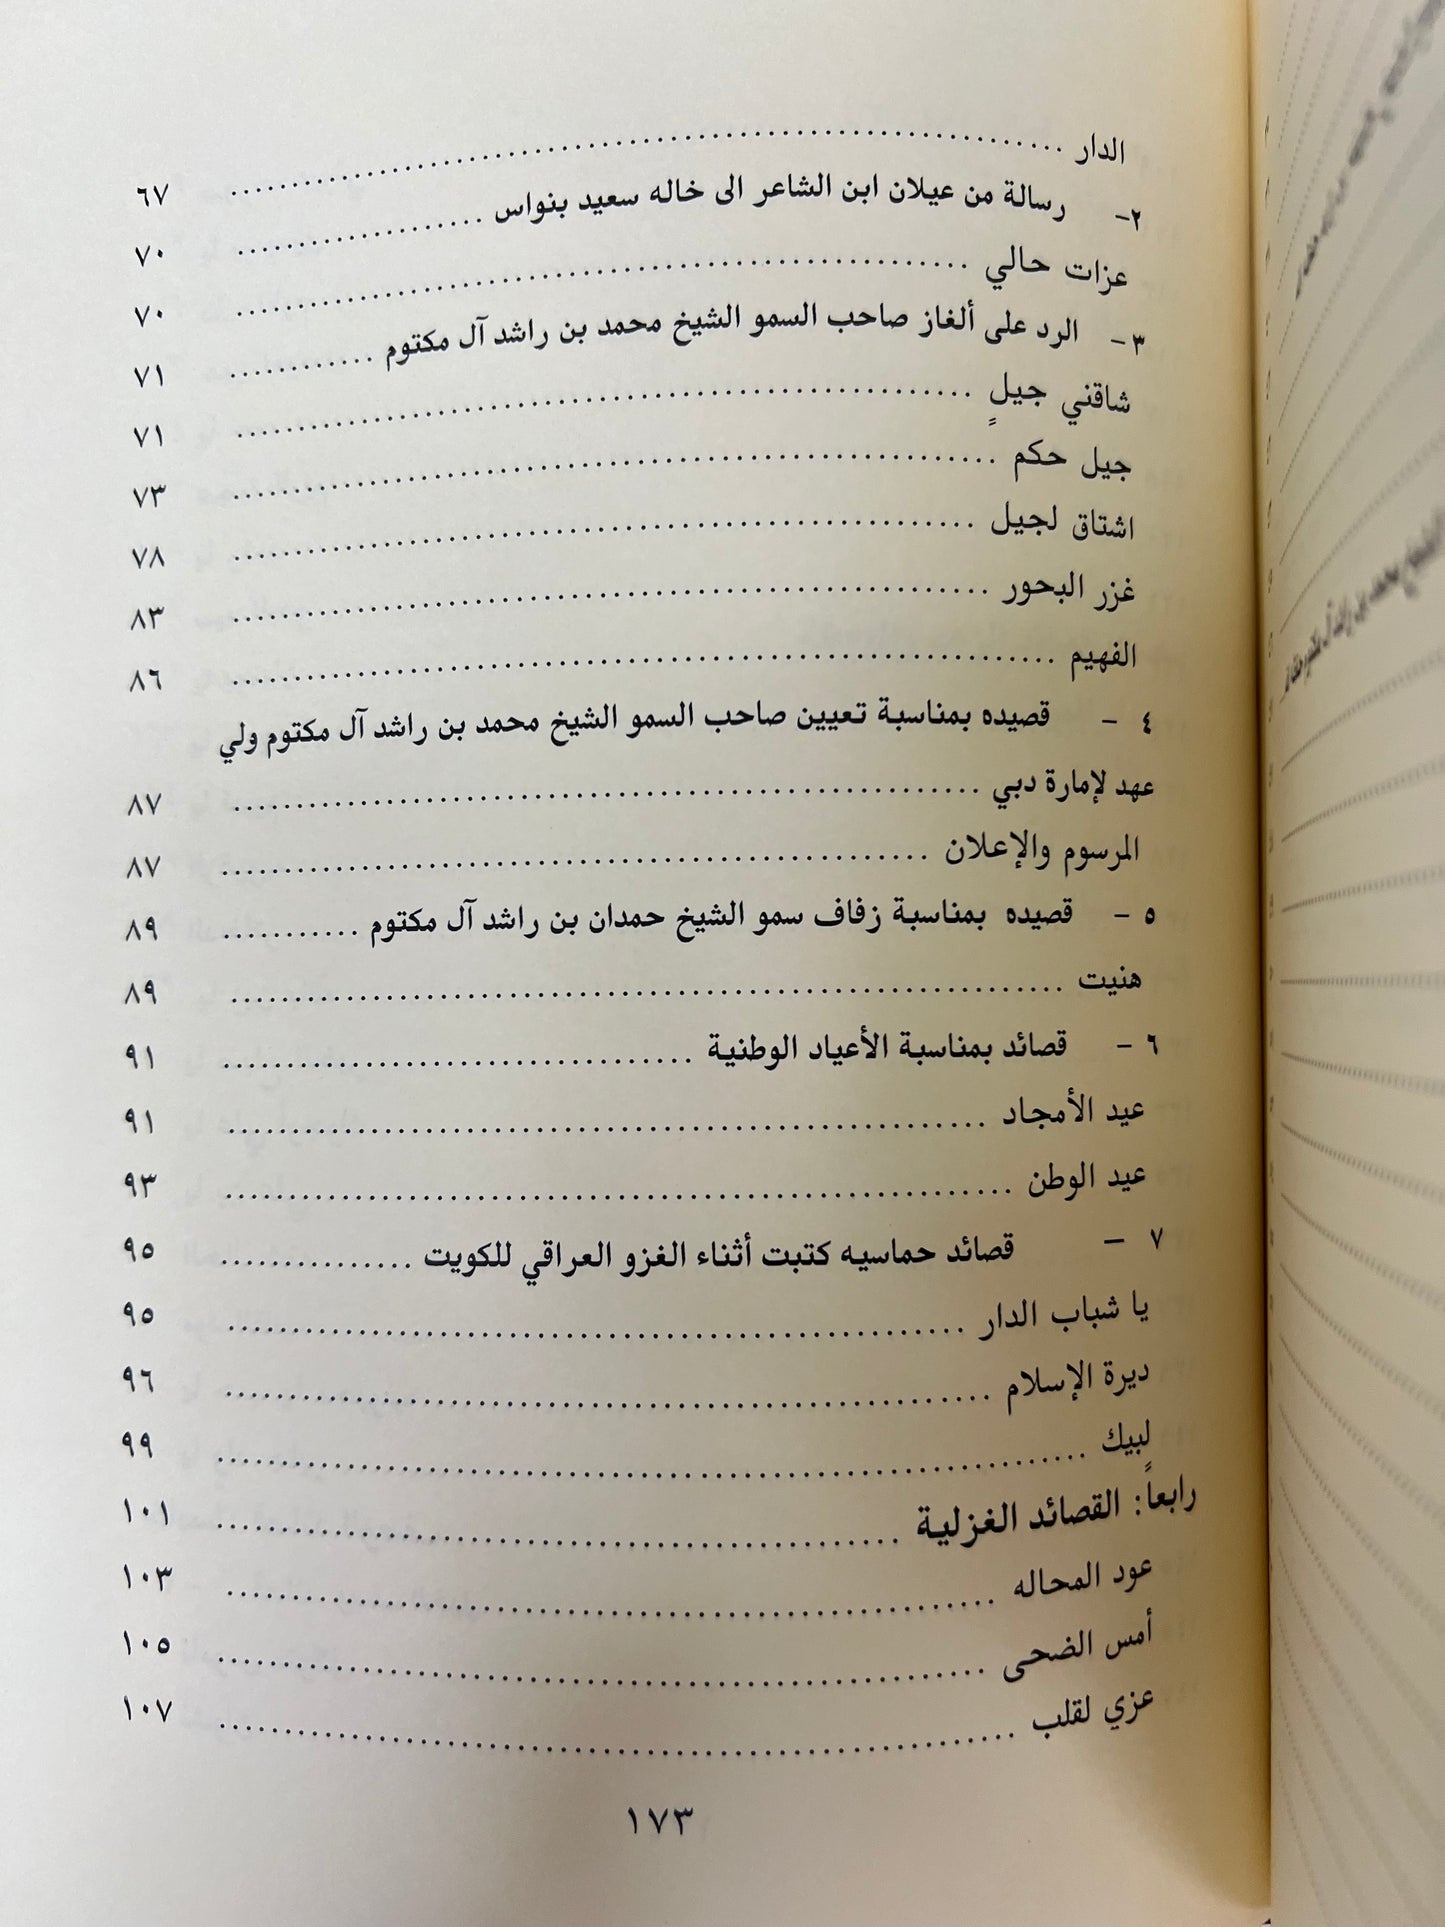 الدار ........ ٦٧
٢- رسالة من عيلان ابن الشاعر الى خاله سعيد بنواس ........ ٧٠
عزات حالي ........ ٧٠
٣- الرد على ألغاز صاحب السمو الشيخ محمد بن راشد آل مكتوم ........ ٧١
شاقني جيلٍ ........ ٧١
جيل حكم ........ ٧٣
اشتاق لجيل ........ ٧٨
غزر البحور ........ ٨٣
الفهيم ........ ٨٦
٤ - قصيده بمناسبة تعيين صاحب السمو الشيخ محمد بن راشد آل مكتوم ولي
عهد لإمارة دبي ........ ٨٧
المرسوم والإعلان ........ ٨٧
٥ - قصيده بمناسبة زفاف سمو الشيخ حمدان بن راشد آل مكتوم ........ ٨٩
هنيت ........ ٨٩
٦ - قصائد بمناسبة الأعياد الوطنية ........ ٩١
عيد الأمجاد ........ ٩١
عيد الوطن ........ ٩٣
٧ – قصائد حماسيه كتبت أثناء الغزو العراقي للكويت ........ ٩٥
يا شباب الدار ........ ٩٥
ديرة الإسلام ........ ٩٦
لبيك ........ ٩٩
رابعاً: القصائد الغزلية ........ ١٠١
عود المحاله ........ ١٠٣
أمس الضحى ........ ١٠٥
عزي لقلب ........ ١٠٧
١٧٣